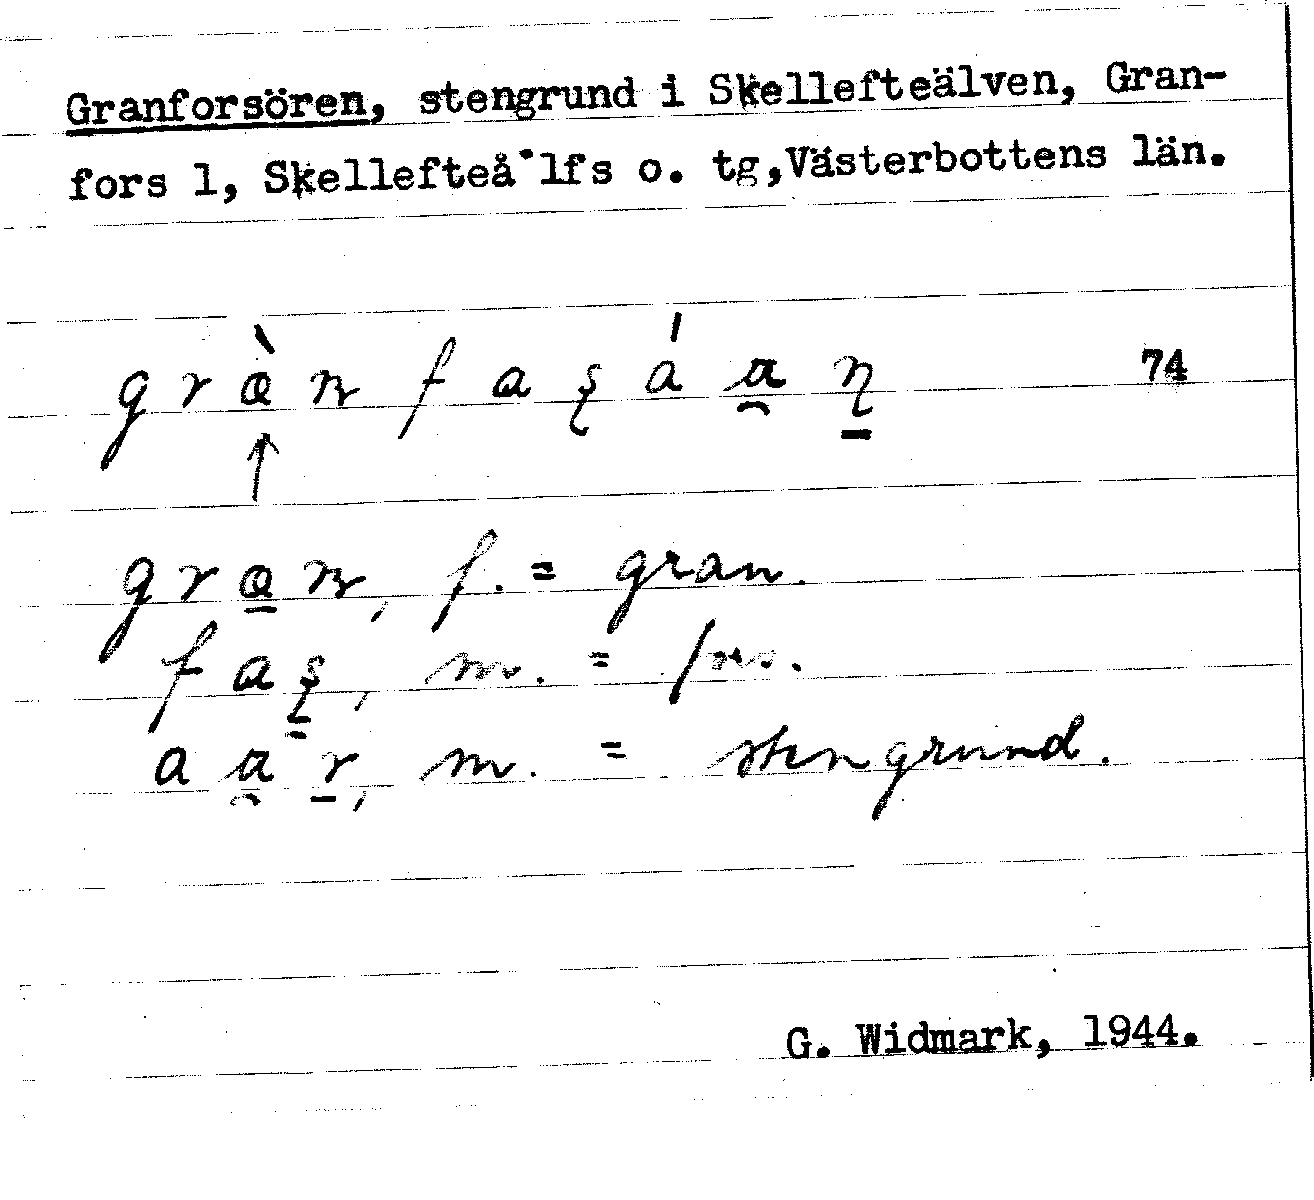 Granforsören, stengrund i Skellefteälven, Gran-
fors 1, Skellefteå lfs o. tg, Västerbottens län.
74
f. = gran.
m. = fors.
m. = stengrund.
G. Widmark, 1944.